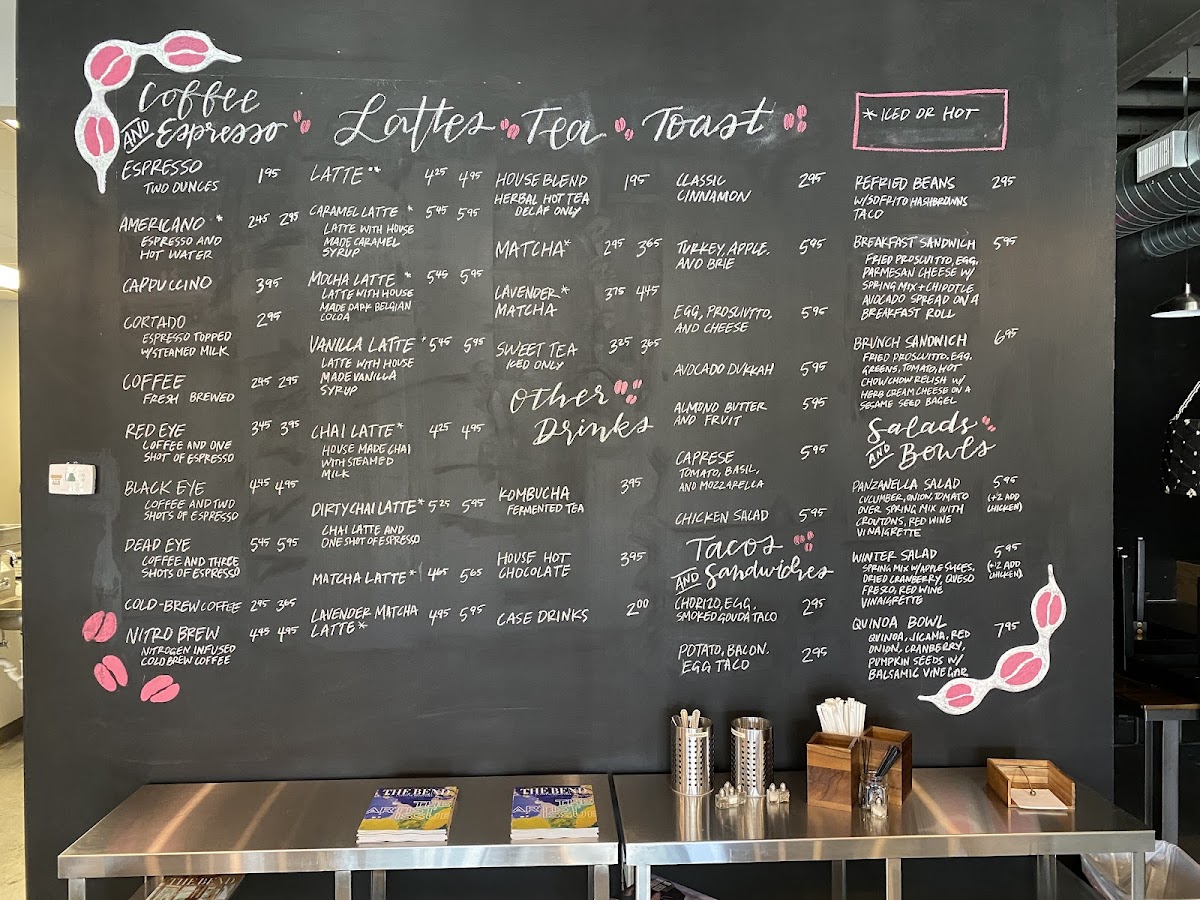 Coffee
AND Espresso
ESPRESSO 1.95
TWO OUNCES
AMERICANO * 2.45 2.95
ESPRESSO AND
HOT WATER
CAPPUCCINO 3.95
CORTADO 2.95
ESPRESSO TOPPED
W/STEAMED MILK
COFFEE 2.45 2.95
FRESH BREWED
RED EYE 3.45 3.95
COFFEE AND ONE
SHOT OF ESPRESSO
BLACK EYE 4.45 4.95
COFFEE AND TWO
SHOTS OF ESPRESSO
DEAD EYE 5.45 5.95
COFFEE AND THREE
SHOTS OF ESPRESSO
COLD-BREW COFFEE 2.95 3.65
NITRO BREW 4.45 4.95
NITROGEN INFUSED
COLD BREW COFFEE
Lattes
LATTE ** 4.25 4.95
CARAMEL LATTE * 5.45 5.95
LATTE WITH HOUSE
MADE CARAMEL
SYRUP
MOCHA LATTE * 5.45 5.95
LATTE WITH HOUSE
MADE DARK BELGIAN
COCOA
VANILLA LATTE * 5.45 5.95
LATTE WITH HOUSE
MADE VANILLA
SYRUP
CHAI LATTE * 4.25 4.95
HOUSE MADE CHAI
WITH STEAMED
MILK
DIRTY CHAI LATTE * 5.25 5.95
CHAI LATTE AND
ONE SHOT OF ESPRESSO
MATCHA LATTE * 4.65 5.65
LAVENDER MATCHA 4.95 5.95
LATTE *
Tea
HOUSE BLEND 1.95
HERBAL HOT TEA
DECAF ONLY
MATCHA * 2.95 3.65
LAVENDER * 3.75 4.45
MATCHA
SWEET TEA 3.25 3.65
ICED ONLY
Other
Drinks
KOMBUCHA 3.95
FERMENTED TEA
HOUSE HOT 3.95
CHOCOLATE
CASE DRINKS 2.00
Toast
CLASSIC 2.95
CINNAMON
TURKEY, APPLE, 5.95
AND BRIE
EGG, PROSCIUTTO, 5.95
AND CHEESE
AVOCADO DUKKAH 5.95
ALMOND BUTTER 5.95
AND FRUIT
CAPRESE 5.95
TOMATO, BASIL,
AND MOZZARELLA
CHICKEN SALAD 5.95
Tacos
AND Sandwiches
CHORIZO, EGG, 2.95
SMOKED GOUDA TACO
POTATO, BACON, 2.95
EGG TACO
* ICED OR HOT
REFRIED BEANS 2.95
W/SOFRITO HASHBROWNS
TACO
BREAKFAST SANDWICH 5.95
FRIED PROSCIUTTO, EGG,
PARMESAN CHEESE W/
SPRING MIX + CHIPOTLE
AVOCADO SPREAD ON A
BREAKFAST ROLL
BRUNCH SANDWICH 6.95
FRIED PROSCUITTO, EGG,
GREENS, TOMATO, HOT
CHOW CHOW RELISH W/
HERB CREAM CHEESE ON A
SESAME SEED BAGEL
Salads
AND Bowls
PANZANELLA SALAD 5.95
CUCUMBER, ONION, TOMATO (+2 ADD
OVER SPRING MIX WITH CHICKEN)
CROUTONS, RED WINE
VINAIGRETTE
WINTER SALAD 5.95
SPRING MIX W/APPLE SLICES, (+2 ADD
DRIED CRANBERRY, QUESO CHICKEN)
FRESCO, RED WINE
VINAIGRETTE
QUINOA BOWL 7.95
QUINOA, JICAMA, RED
ONION, CRANBERRY,
PUMPKIN SEEDS W/
BALSAMIC VINEGAR
THE BEND
THE
ARTIST
ISSUE
THE BEND
THE
ARTIST
ISSUE
THE BEND